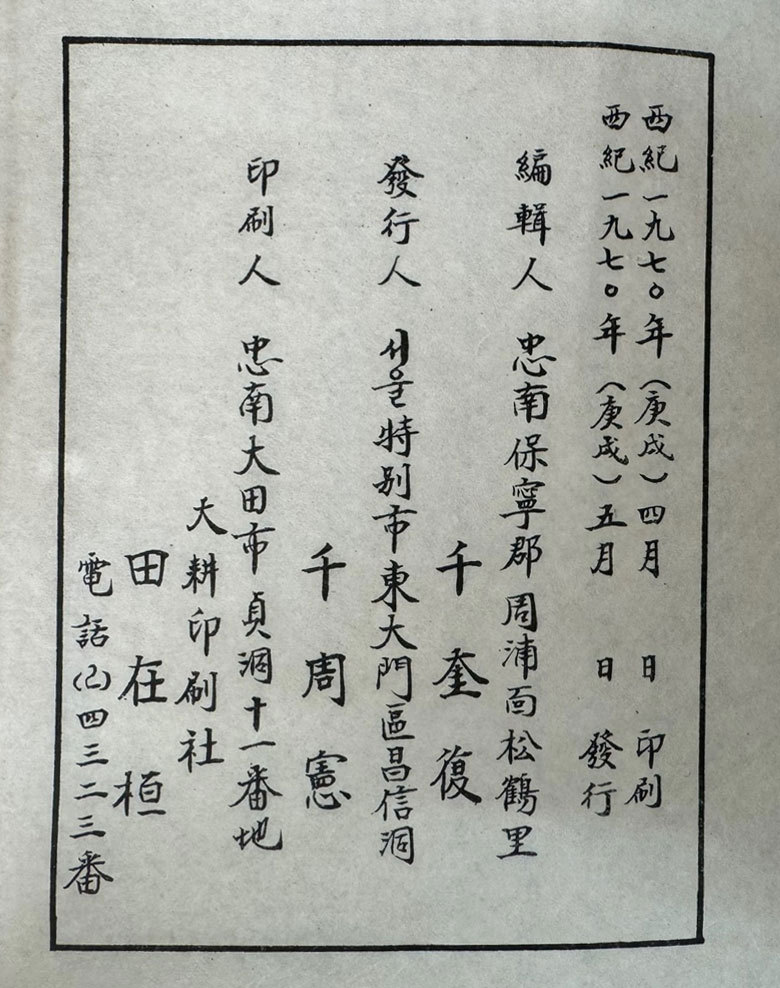 西紀一九七〇年（庚戌）四月　日　印刷
西紀一九七〇年（庚戌）五月　日　發行
編輯人　忠南保寧郡周浦面松鶴里
千奎復
發行人　서울特别市東大門區昌信洞
千周憲
印刷人　忠南大田市貞洞十一番地
大耕印刷社
田在桓
電話(2)四三二三番